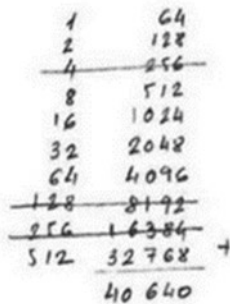 1 64
2 128
4 256
8 512
16 1024
32 2048
64 4096
128 8192
256 16384
512 32768 +
40640